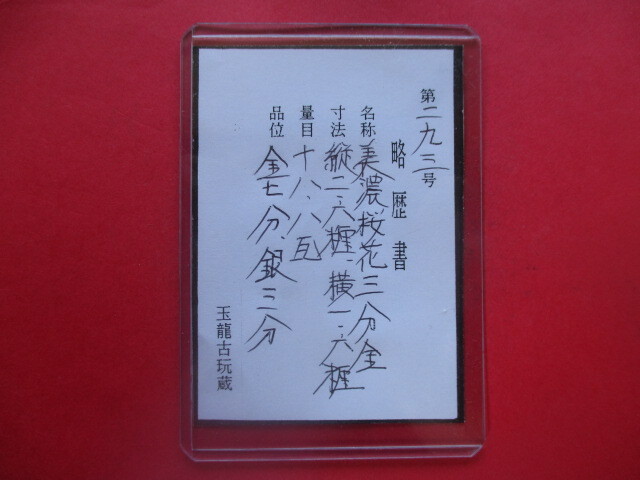 第二九三号
略歴書
名称 美濃桜花三分金
寸法 縦二・六糎、横一・六糎
量目 十八・八瓦
品位 金七分、銀三分
玉龍古玩蔵